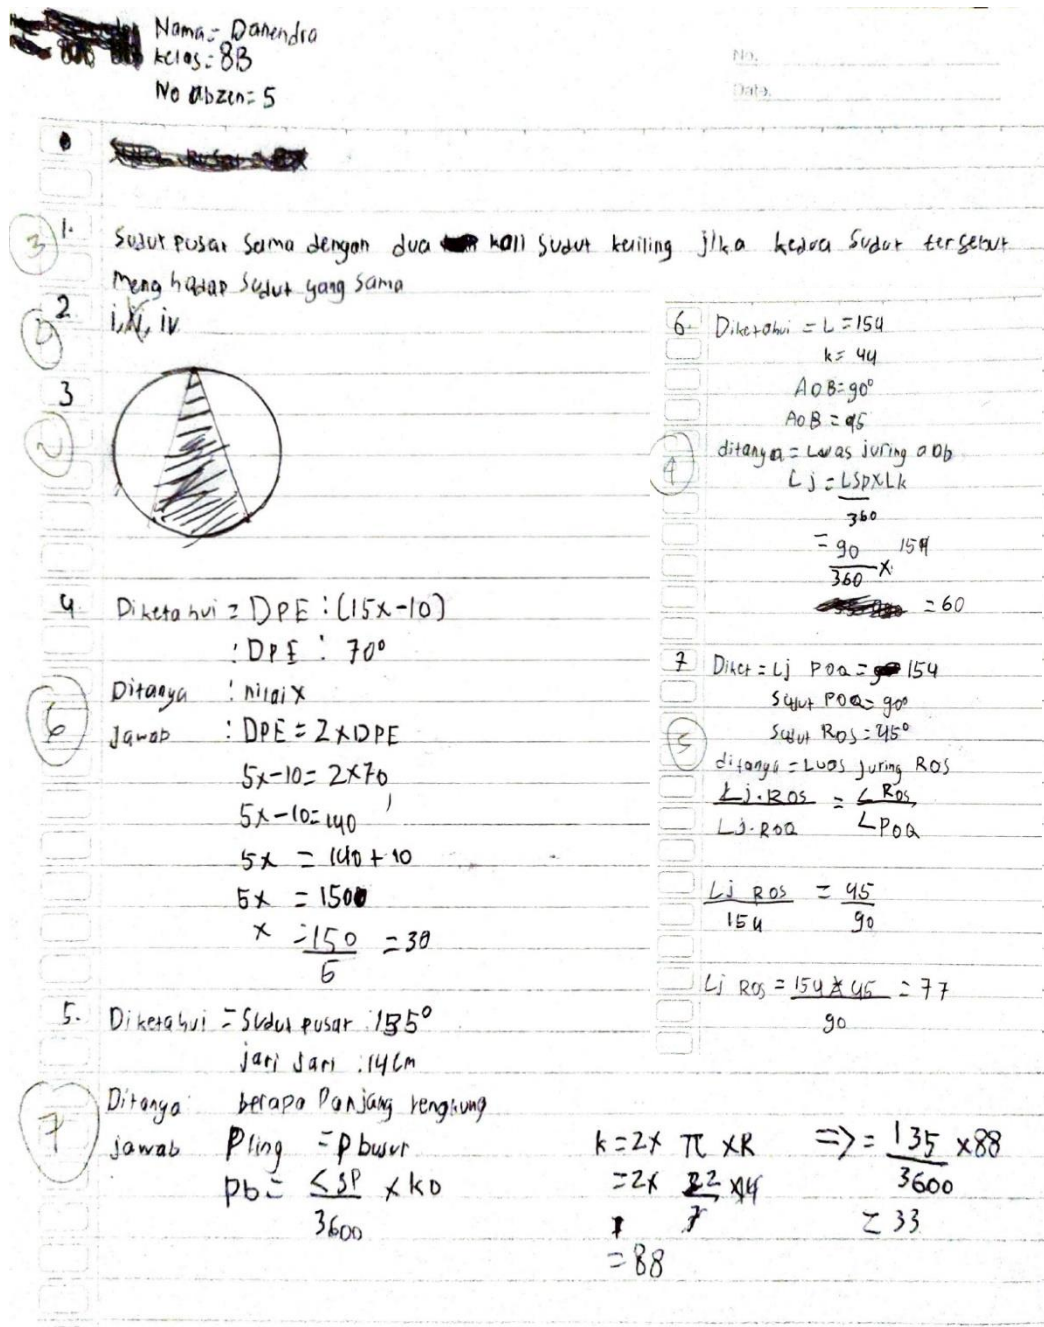 Nama = Danendra
kelas = 8B
No abzen = 5
No.
Date.
3
1. Sudut pusar sama dengan dua kali sudut keriling jika kedua sudut tersebut
menghadap sudut yang sama
2
i, iv
3
2
4. Diketahui = DPE : (15x-10)
: DPE : 70°
Ditanya : nilai x
6
Jawab : DPE = 2 x DPE
5x-10 = 2x70
5x-10 = 140
5x = 140 + 10
5x = 150
x = 150 = 30
5
5. Diketahui = Sudut pusar : 135°
jari jari : 14 cm
7
Ditanya berapa panjang lengkung
jawab Pling = P busur
Pb = <SP x ko
3600
k = 2x π x R
= 2x 22 x 14
7
= 88
=> = 135 x 88
3600
= 33
6. Diketahui = L = 154
k = 44
AOB = 90°
AOB = 95
4
ditanya = Luas juring aob
Lj = LSp x Lk
360
= 90 x 154
360
= 60
7 Diket = Lj POQ = 154
Sudut POQ = 90°
Sudut ROS = 45°
5
ditanya = Luas juring ROS
Lj. ROS = ∠ ROS
Lj. POQ ∠ POQ
Lj ROS = 45
154 90
Lj ROS = 154 x 45 = 77
90